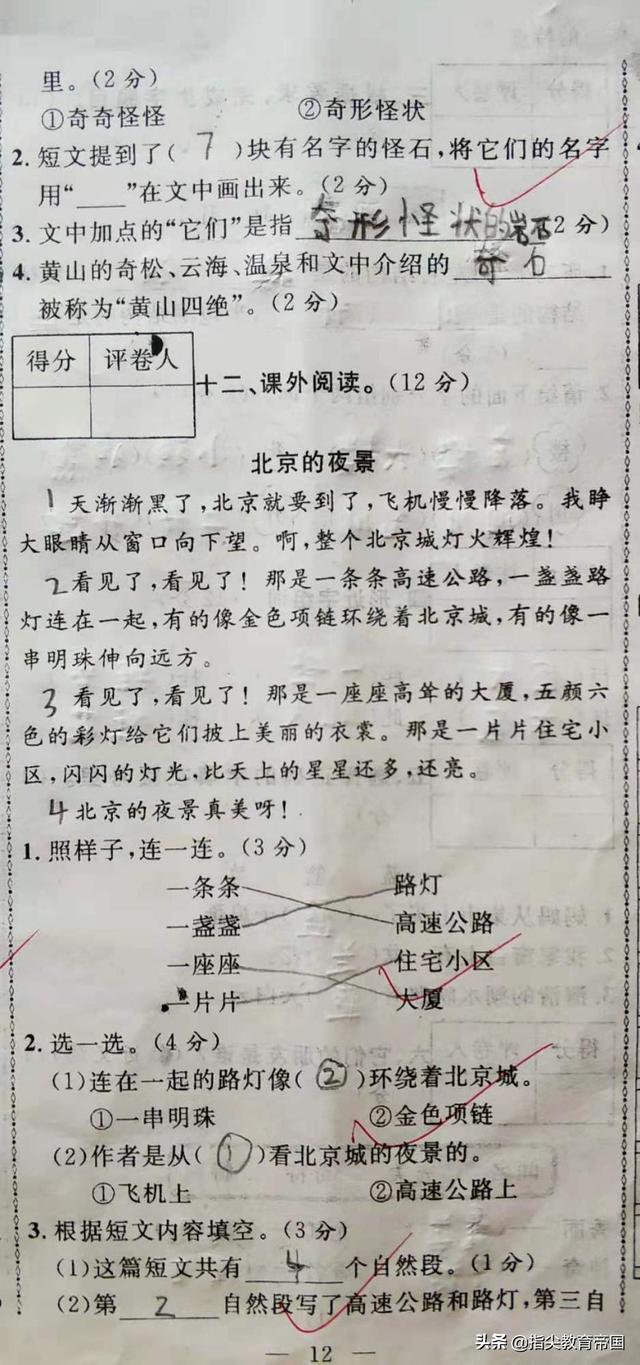 里。(2分)
①奇奇怪怪 ②奇形怪状
2.短文提到了( 7 )块有名字的怪石,将它们的名字
用“___”在文中画出来。(2分)
3.文中加点的“它们”是指 奇形怪状的岩石 2分)
4.黄山的奇松、云海、温泉和文中介绍的 奇石
被称为“黄山四绝”。(2分)
得分 评卷人
十二、课外阅读。(12分)
北京的夜景
1 天渐渐黑了,北京就要到了,飞机慢慢降落。我睁
大眼睛从窗口向下望。啊,整个北京城灯火辉煌!
2 看见了,看见了!那是一条条高速公路,一盏盏路
灯连在一起,有的像金色项链环绕着北京城,有的像一
串明珠伸向远方。
3 看见了,看见了!那是一座座高耸的大厦,五颜六
色的彩灯给它们披上美丽的衣裳。那是一片片住宅小
区,闪闪的灯光,比天上的星星还多,还亮。
4 北京的夜景真美呀!
1.照样子,连一连。(3分)
一条条 路灯
一盏盏 高速公路
一座座 住宅小区
一片片 大厦
2.选一选。(4分)
(1)连在一起的路灯像( ② )环绕着北京城。
①一串明珠 ②金色项链
(2)作者是从( ① )看北京城的夜景的。
①飞机上 ②高速公路上
3.根据短文内容填空。(3分)
(1)这篇短文共有 4 个自然段。(1分)
(2)第 2 自然段写了高速公路和路灯,第三自
— 12 —
头条 @指尖教育帝国